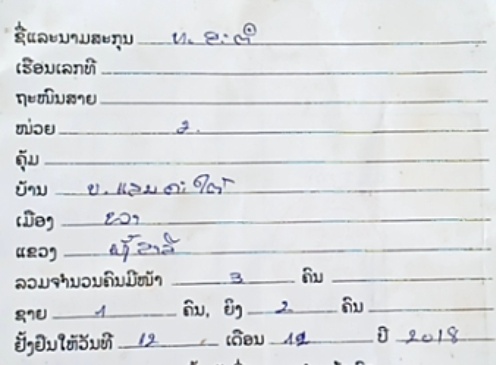 ຊື່ແລະນາມສະກຸນ ທ. ຂະຕິ
ເຮືອນເລກທີ
ຖະໜົນສາຍ
ໜ່ວຍ 2.
ຄຸ້ມ
ບ້ານ ບ.
ເມືອງ ຂວາ
ແຂວງ ຜົ້ງສາລີ
ລວມຈຳນວນຄົນມີໜ້າ 3 ຄົນ
ຊາຍ 1 ຄົນ, ຍິງ 2 ຄົນ
ຢັ້ງຢືນໃຫ້ວັນທີ 12 ເດືອນ 12 ປີ 2018